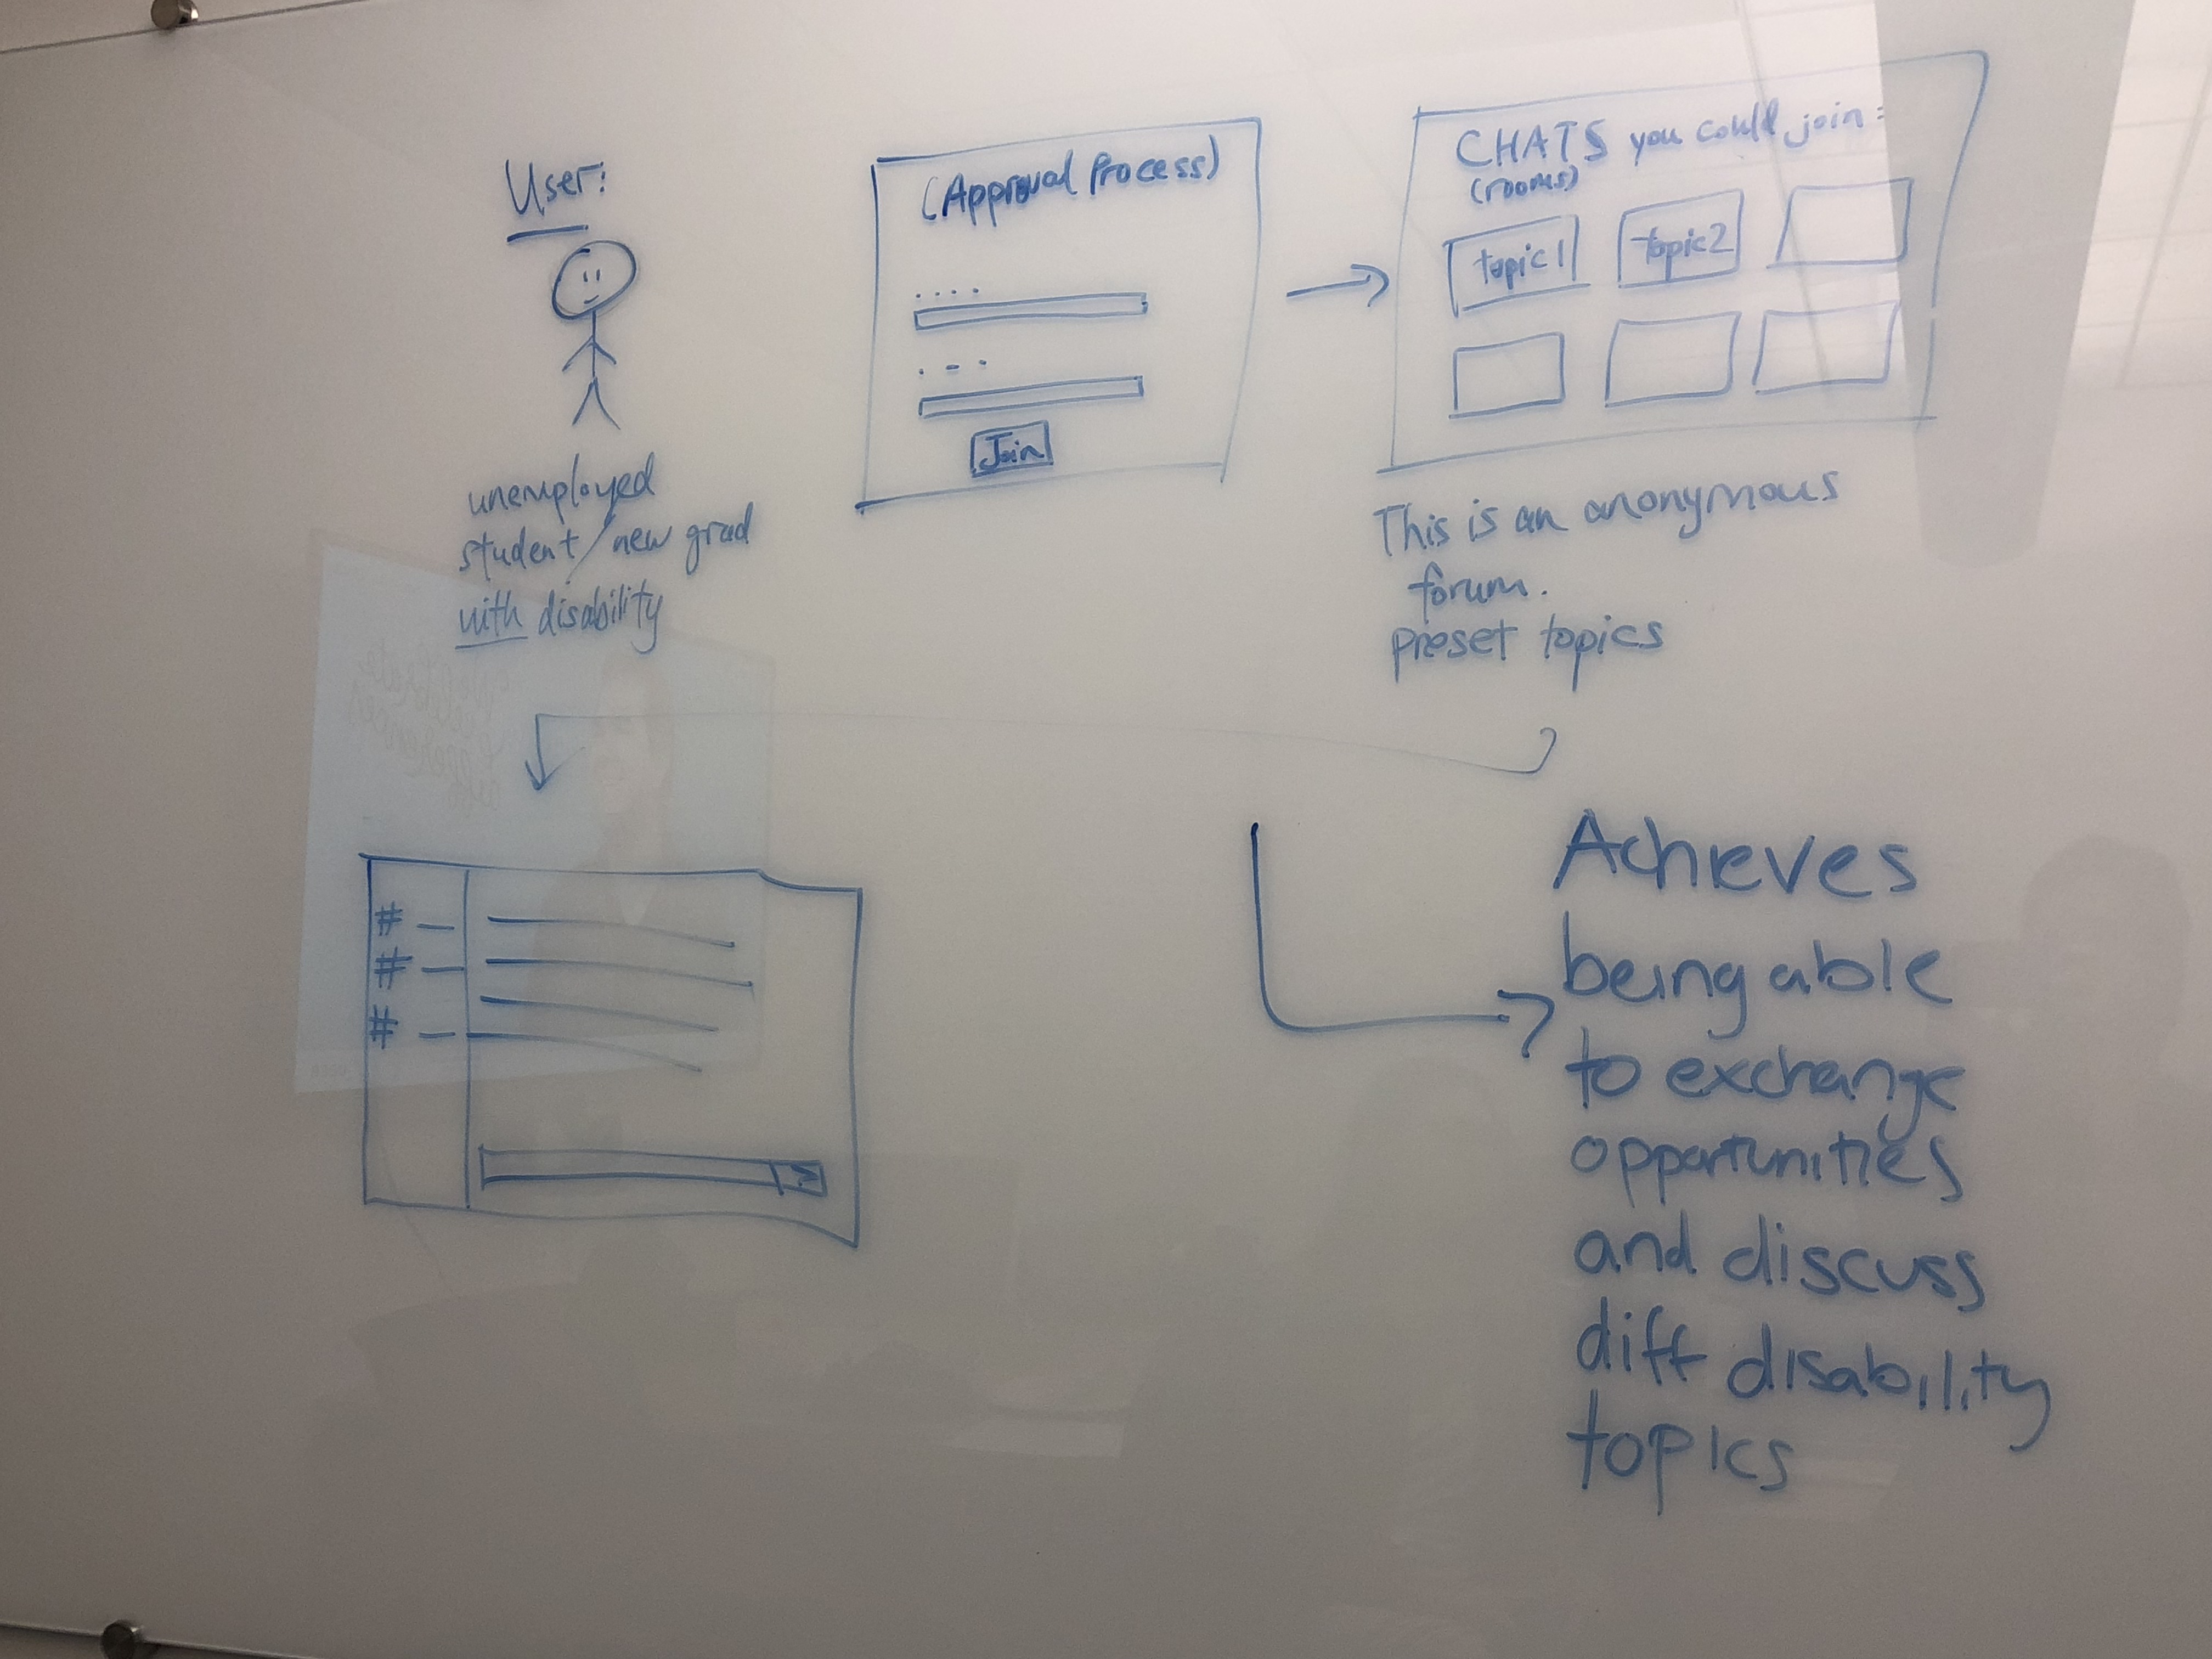 User:
unemployed
student/new grad
with disability
(Approval Process)
....
. - .
Join
CHATS you could join:
(rooms)
topic1
topic2
This is an anonymous
forum.
preset topics
# —
# —
# —
>
Achieves
being able
to exchange
opportunities
and discuss
diff disability
topics